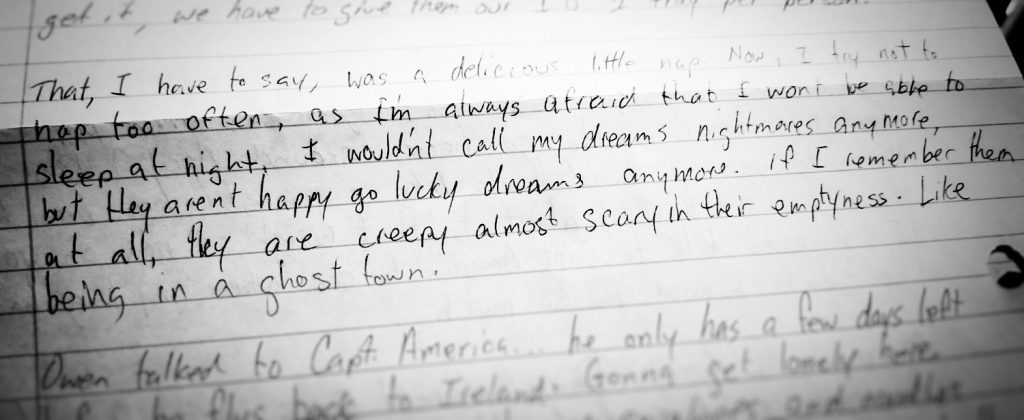 get it, we have to give them our 10 1 tray per person.
That, I have to say, was a delicious little nap. Now, I try not to
nap too often, as I'm always afraid that I won't be able to
sleep at night. I wouldn't call my dreams nightmares anymore,
but they arent happy go lucky dreams anymore. if I remember them
at all, they are creepy almost scary in their emptyness. Like
being in a ghost town.
Owen talked to Capt. America... he only has a few days left
he flys back to Ireland. Gonna get lonely here.
and